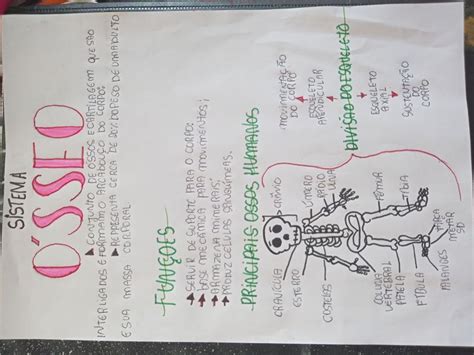 SISTEMA
ÓSSEO
CONJUNTO DE OSSOS E CARTILAGEM QUE SÃO
INTERLIGADOS E FORMAM O ARCABOUÇO DO CORPO.
REPRESENTA CERCA DE 20% DO PESO DE UM ADULTO
E SUA MASSA CORPORAL
FUNÇÕES
SERVIR DE SUPORTE PARA O CORPO;
BASE MECÂNICA PARA MOVIMENTOS;
ARMAZENA MINERAIS;
PRODUZ CÉLULAS SANGUÍNEAS.
PRINCIPAIS OSSOS HUMANOS
CRÂNIO
CLAVÍCULA
ESTERNO
COSTELAS
ÚMERO
RÁDIO
ULNA
COLUNA
VERTEBRAL
PATELA
FÍBULA
FALANGES
FÊMUR
TÍBIA
DIVISÃO DO ESQUELETO
ESQUELETO
APENDICULAR
MOVIMENTAÇÃO
DO CORPO
ESQUELETO
AXIAL
SUSTENTAÇÃO
DO CORPO